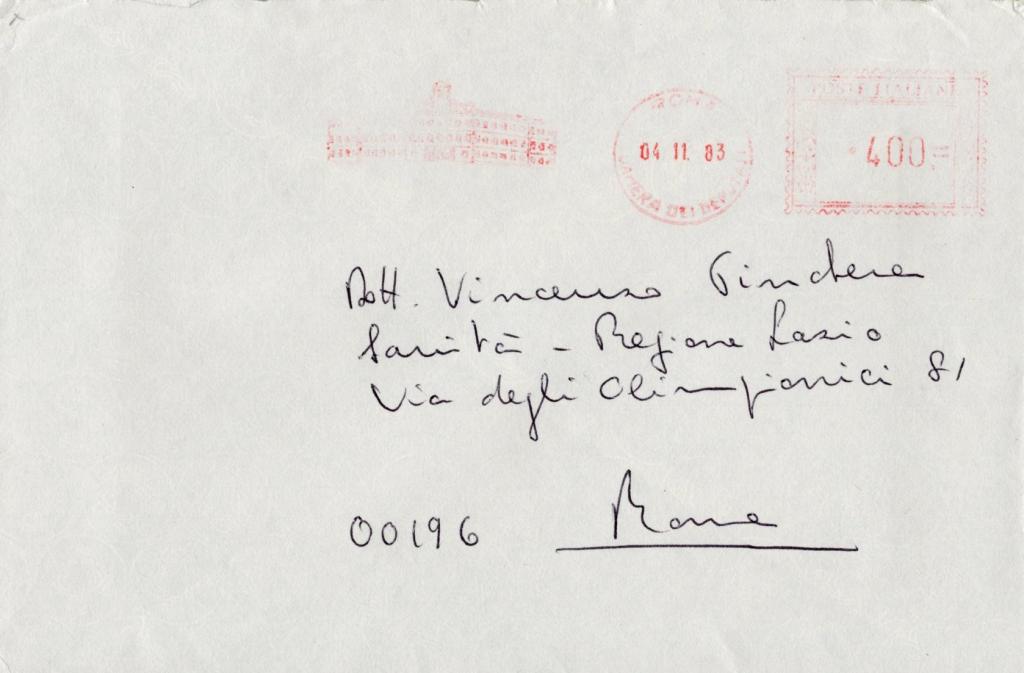 ROMA
CAMERA DEI DEPUTATI
04 11 83
POSTE ITALIANE
400
Dott. Vincenzo
Sanità - Regione Lazio
Via degli Olimpionici 81
00196 Roma